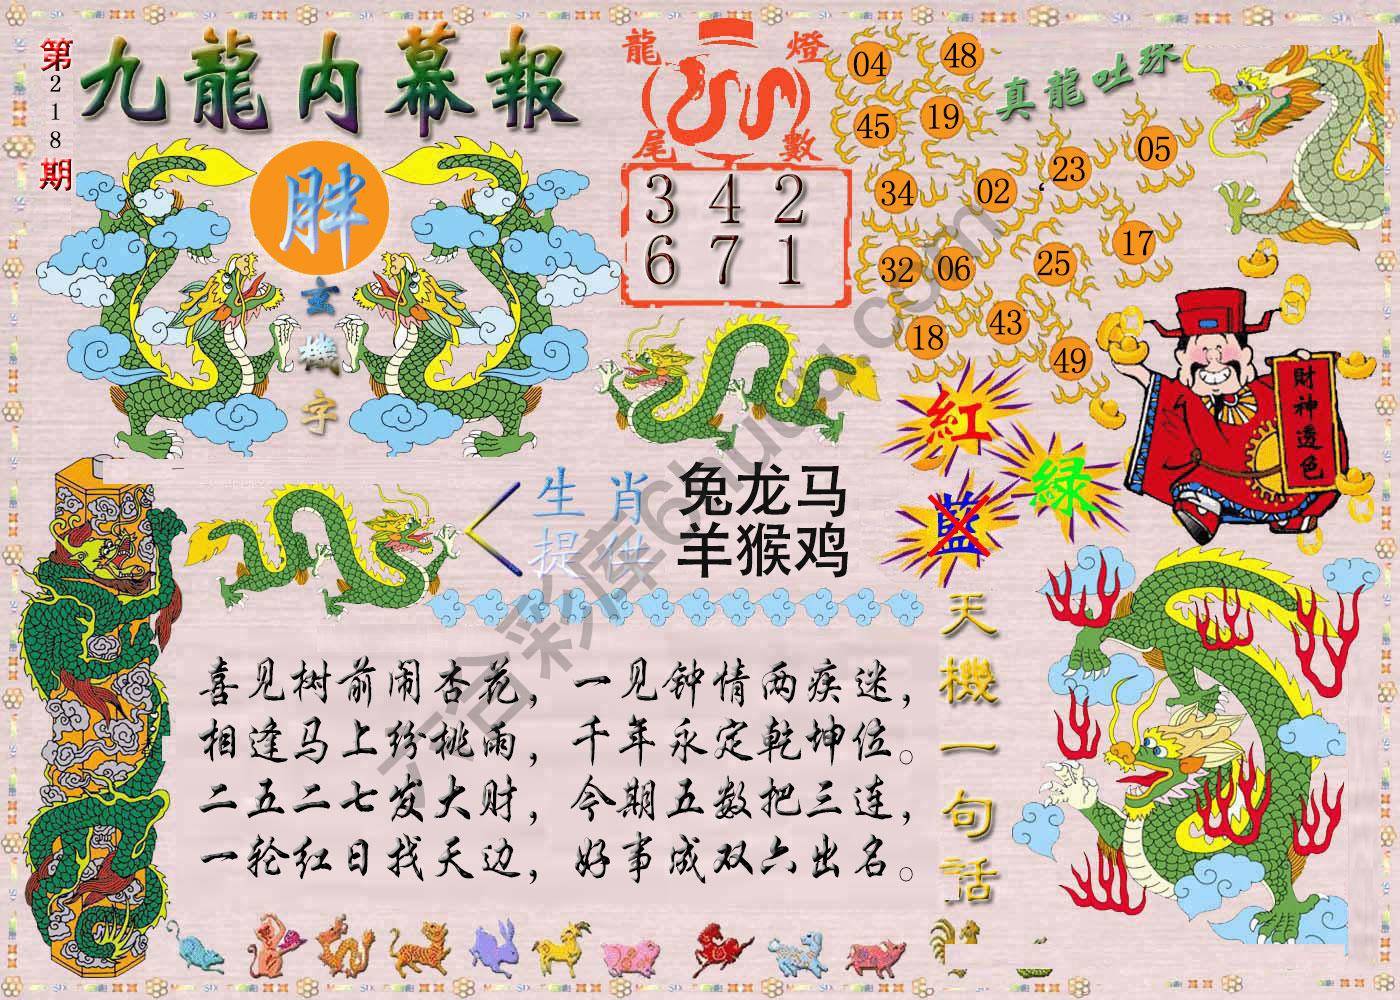 第218期
九龍内幕報
胖
玄機字
龍燈
尾數
3 4 2
6 7 1
真龍吐珠
04 48
45 19
34 02 23 05
32 06 25 17
18 43 49
財神透色
紅
绿
藍
生肖
提供
兔龙马
羊猴鸡
喜见树前闹杏花，一见钟情两疾迷，
相逢马上纷桃雨，千年永定乾坤位。
二五二七发大财，今期五数把三连，
一轮红日找天边，好事成双六出名。
天機一句話